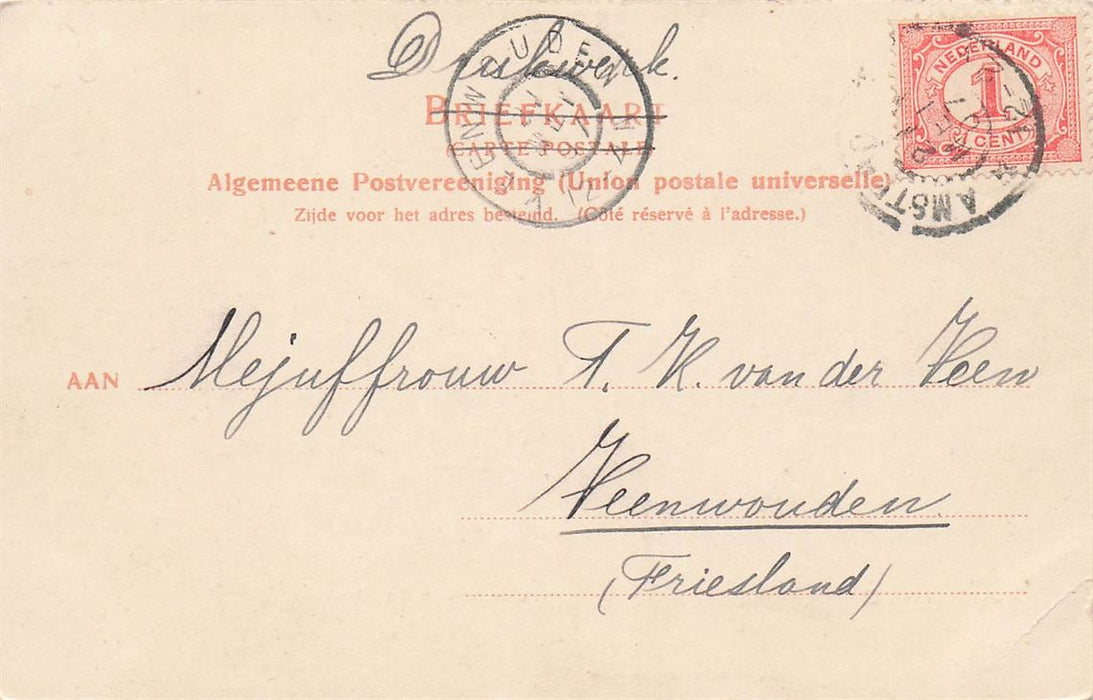 Drukwerk.
BRIEFKAART
(CARTE POSTALE)
Algemeene Postvereeniging (Union postale universelle)
Zijde voor het adres bestemd. (Côté réservé à l'adresse.)
NEDERLAND
1
1 CENT
AMSTE
12-1
UDEN
12-4N
AAN Mejuffrouw T. K. van der Veen
Veenwouden.
(Friesland)